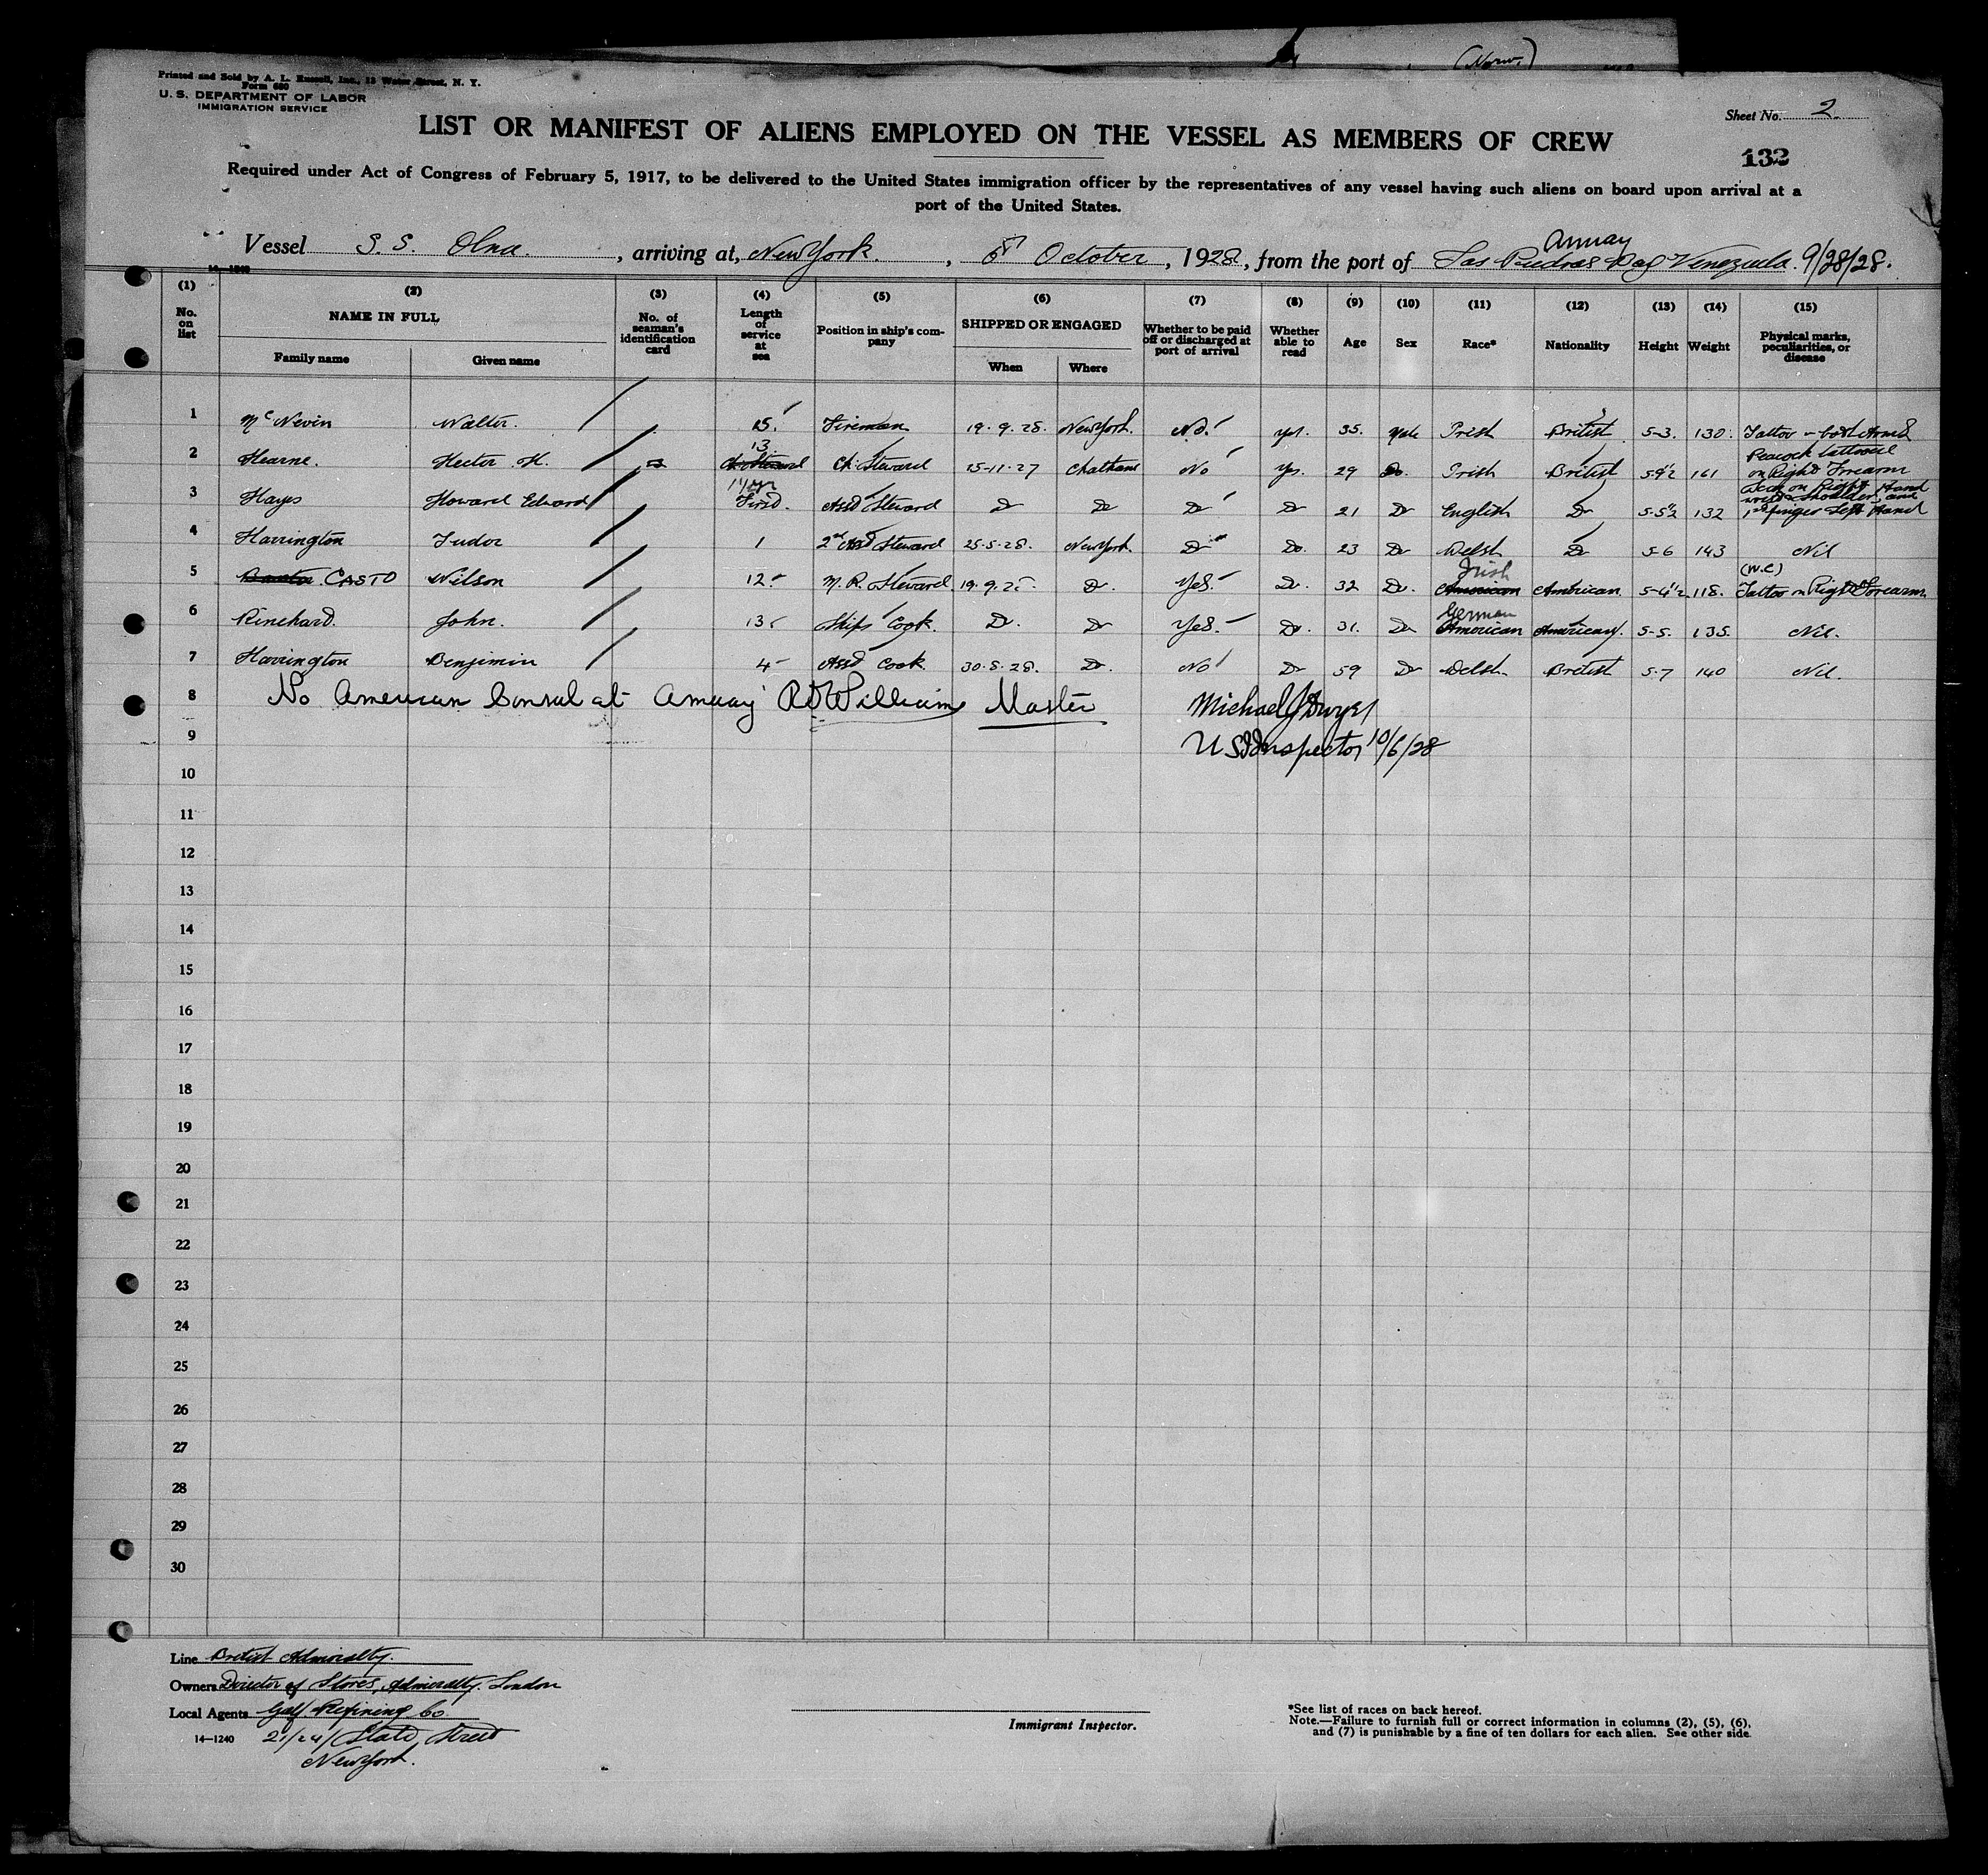 (Norw.)
Printed and Sold by A. L. Russell, Inc., 12 Water Street, N. Y.
Form 680
U. S. DEPARTMENT OF LABOR
IMMIGRATION SERVICE
Sheet No. 2
LIST OR MANIFEST OF ALIENS EMPLOYED ON THE VESSEL AS MEMBERS OF CREW
132
Required under Act of Congress of February 5, 1917, to be delivered to the United States immigration officer by the representatives of any vessel having such aliens on board upon arrival at a
port of the United States.
Amuay
Vessel S.S. Olna. , arriving at, New York. , 6th October , 1928, from the port of Las Piedras Bay Venezuela. 9/28/28.
14-1240
(1) (2) (3) (4) (5) (6) (7) (8) (9) (10) (11) (12) (13) (14) (15)
No. on list NAME IN FULL Family name Given name No. of seaman's identification card Length of service at sea Position in ship's company SHIPPED OR ENGAGED When Where Whether to be paid off or discharged at port of arrival Whether able to read Age Sex Race* Nationality Height Weight Physical marks, peculiarities, or disease
1 McNevin Walter. 15. Fireman 19.9.28. New York. No. yes. 35. Male Irish British 5-3. 130. Tattoo - both Arms
2 Hearne. Hector H. 13 Ch. Steward Ch. Steward 25-11-27 Chatham No Yes. 29 Do. Irish British 5-9½ 161 Peacock tattooed on Right Forearm
3 Hayes Howard Edward 1 yr First. Asst Steward Do Do Do Do 21 Do English Do 5-5½ 132 Scar on Right Hand and 1st finger Left Hand
4 Harrington Tudor 1 2nd Asst Steward 25.5.28. New York. Do Do. 23 Do Welsh Do 5-6 143 Nil
5 CASTO Wilson 12 M. R. Steward 19.9.28. Do. Yes. Do. 32 Do. American Irish American 5-4½ 118. (W.C.) Tattoo on Right Forearm
6 Rinehard. John. 13 Ships Cook. Do. Do Yes. Do. 31. Do American German American. 5-5. 135. Nil.
7 Harrington Benjimin 4 Asst Cook 30.8.28. Do. No Do 59 Do Welsh British 5-7 140 Nil.
8 No American Consul at Amuay R D Williams Master Michael J Dwyer
9 US Inspector 10/6/28
10
11
12
13
14
15
16
17
18
19
20
21
22
23
24
25
26
27
28
29
30
Line British Admiralty.
Owners Director of Stores, Admiralty. London
Local Agents Gulf Refining Co.
14—1240 21/24 State Street
New York.
Immigrant Inspector.
*See list of races on back hereof.
Note.—Failure to furnish full or correct information in columns (2), (5), (6),
and (7) is punishable by a fine of ten dollars for each alien. See other side.